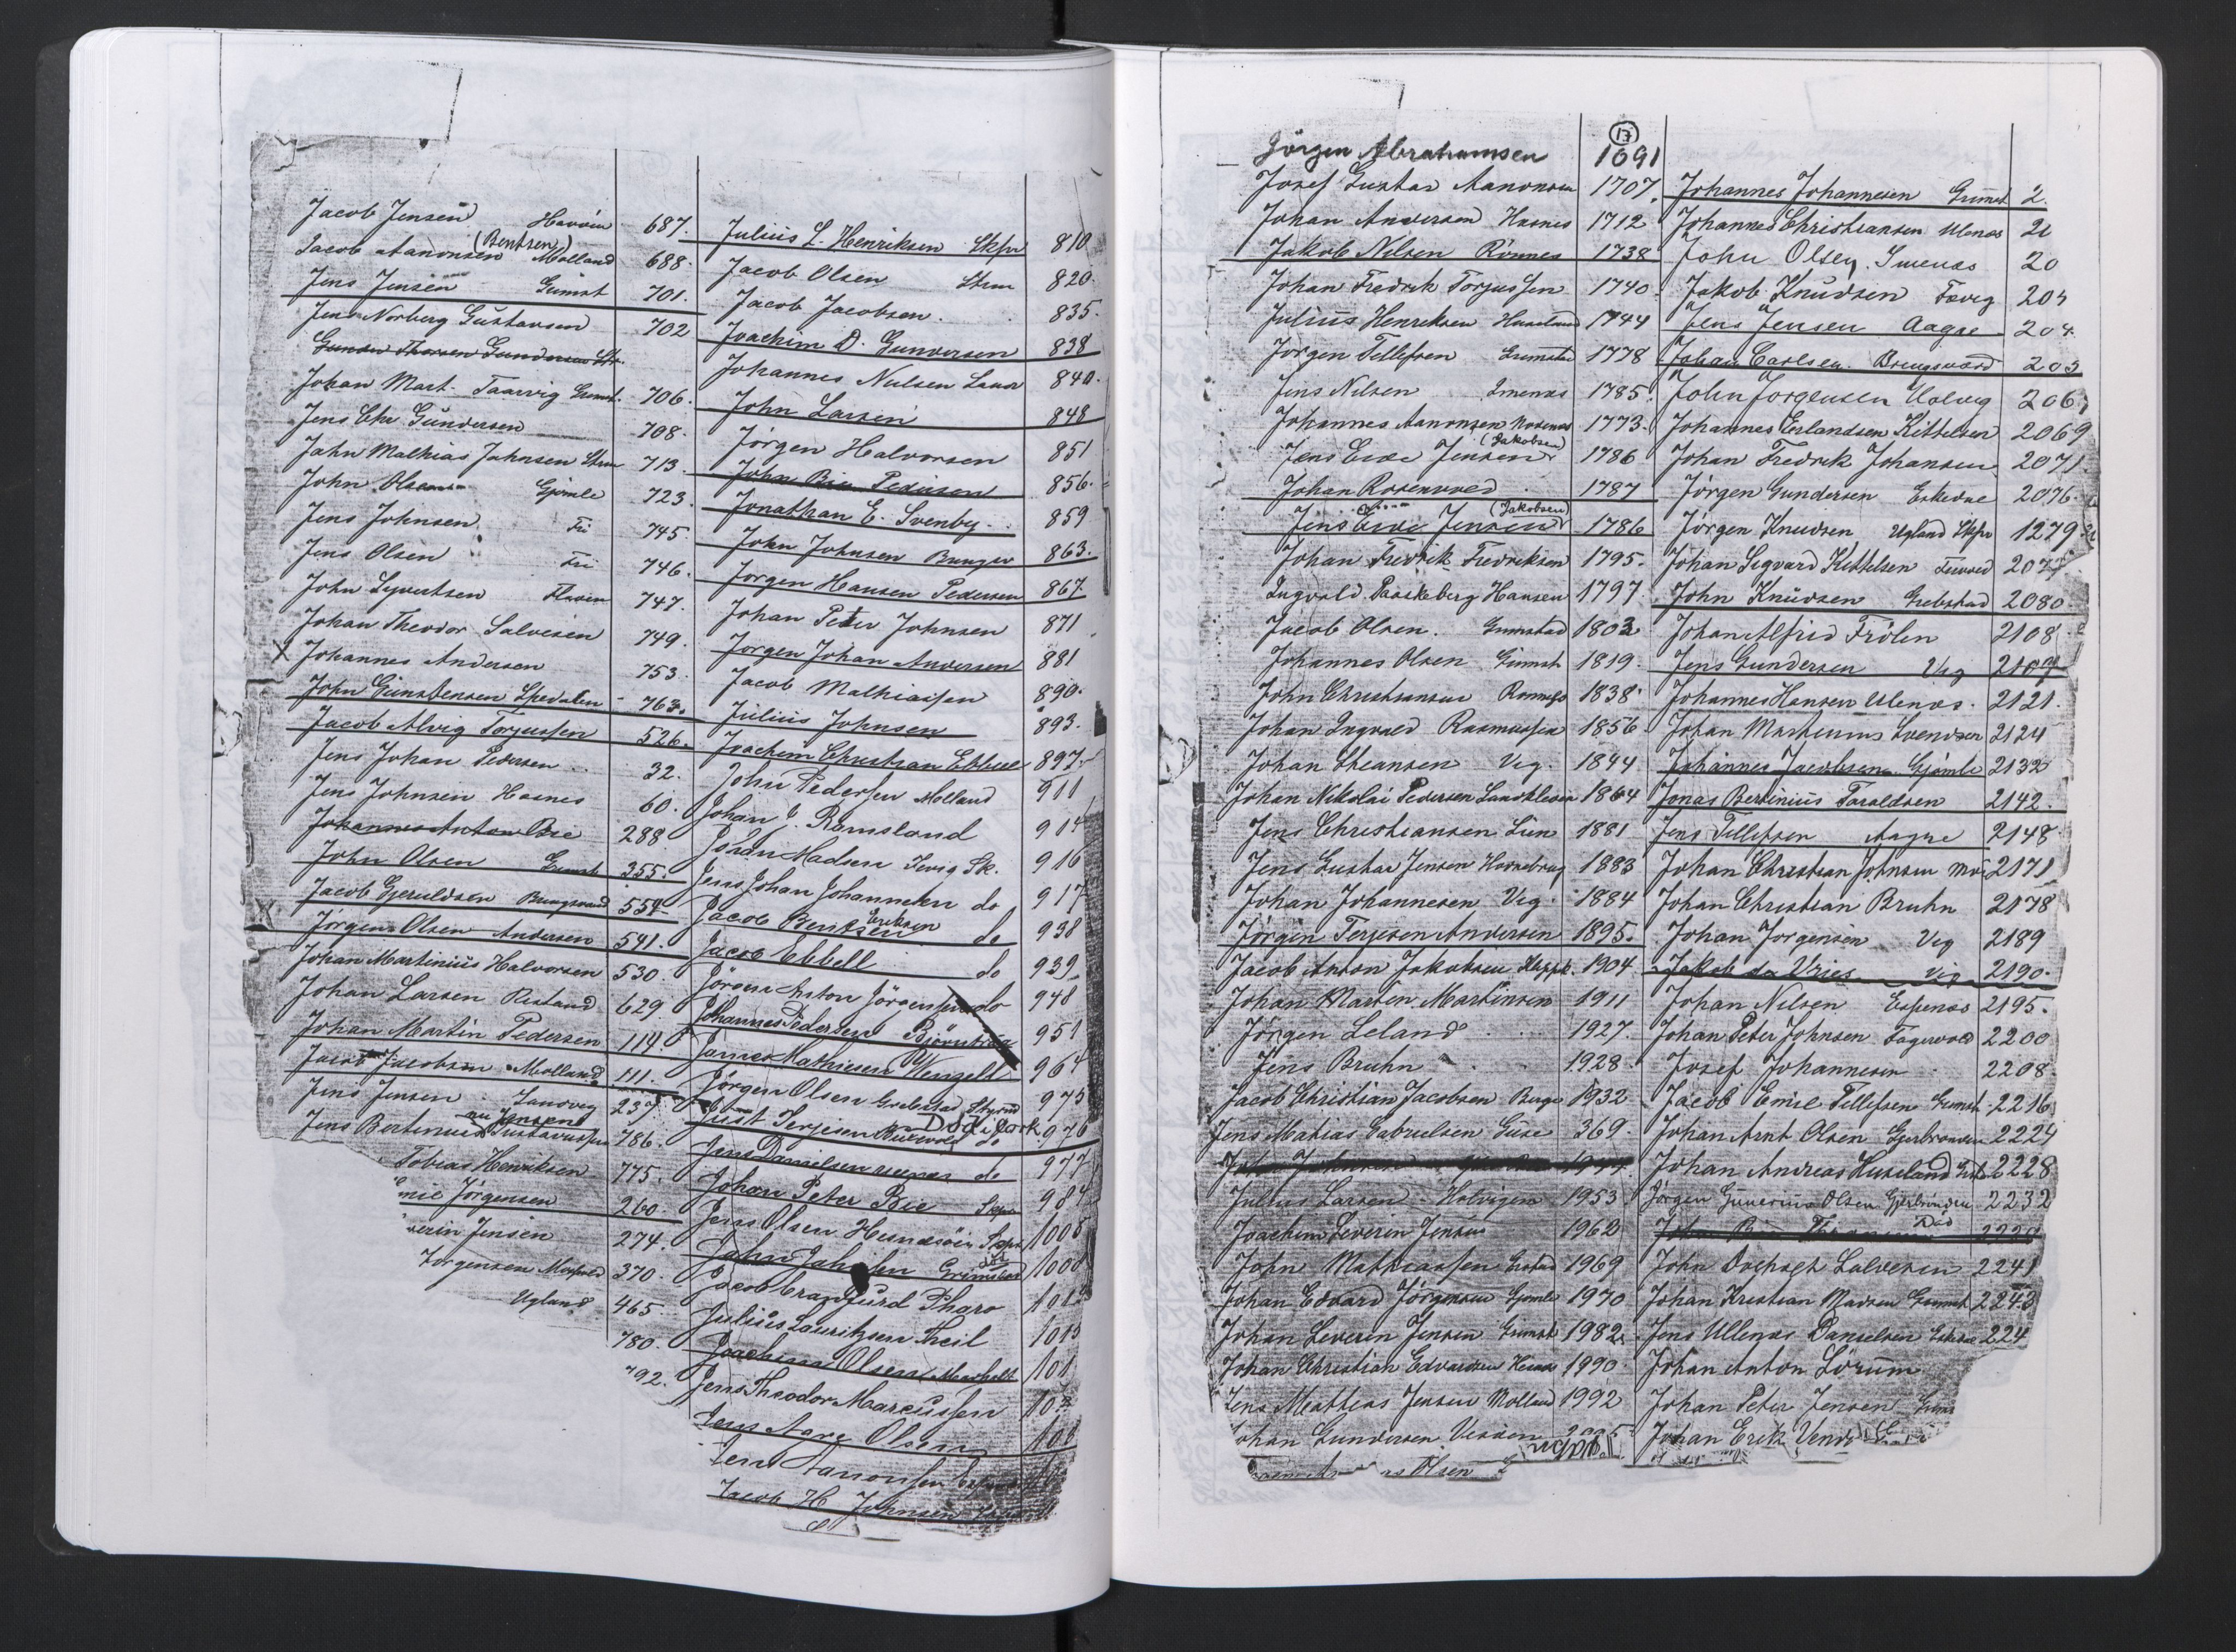 Jacob Jensen Havöen 687.
Jacob Aanonsen (Bentsen) Molland 688.
Jens Jensen Grimst 701.
Jens Norberg Gustavsen 702
Gunder Thorsen Gundersen
Johan Mart. Taarvig Grmst. 706.
Jens Chr Gundersen 708.
John Mathias Johnsen Strm 713.
John Olsen Gjömle 723.
Jens Johnsen Fii 745.
Jens Olsen Fii 746.
John Syvertsen 747.
Johan Theodor Salvesen 749.
X Johannes Andersen 753.
John Gunstensen Spedalen 763.
Jacob Alvig Torjussen 526.
Jens Johan Pedersen 32.
Jens Johnsen Hasnes 60.
Johannes Anton Bie 288.
John Olsen Grmst 355.
Jacob Gjeruldsen Brngsvard 559
Jörgen Olsen Andersen 541.
Johan Martinius Halvorsen 530.
Johan Larsen Ristand 629.
Johan Martin Pedersen 114.
Jacob Jacobsen Molland 111.
Jens Jensen Landvig 237
Jens Bertinius Gustavussen nu Jensen 786.
Tobias Henriksen 775.
mie Jörgensen 260.
verin Jensen 274.
Jörgensen 370.
Ugland 465
780.
792.
Julius L. Henriksen Skpr 810.
Jacob Olsen Strm 820.
Jacob Jacobsen. 835.
Joachim D. Gundersen 838
Johannes Nielsen 840.
John Larsen 848
Jörgen Halvorsen 851
John Bie Pedersen 856.
Jonathan E. Svenby. 859
John Johnsen 863.
Jorgen Hansen Pedersen 867
Johan Peter Johnsen 871
Jorgen Johan Andersen 881
Jacob Mathiassen 890.
Julius Johnsen 893.
Joachim Christian Ebbell 897.
John Pedersen Molland 911
Johan J. Ramsland 914
Johan Madsen Sk. 916
Jens Johan Johannesen do 917
Jacob Bentsen Eriksen do 938
Jacob Ebbell do 939
Jörgen Anton Jörgensen do 948
Johannes Pedersen 951
James Mathiesen Wenzell 964
Jörgen Olsen Grebstad Styrmd 975
Just Terjesen do 976
Jens Danielsen do 977
Johan Peter Bie Skpr 984
Jens Olsen Hesnesöen Skpr 1008
John Johnsen Grimstad 1008
Jacob Crawfurd Pharo 101
Julius Lauritzsen Theil 1015
Joachim Olsen 101
Jens Theodor Marcussen 10
Jens Aare Olsen 10
Jens Aanonsen
Jacob H Johnsen
17
Jörgen Abrahamsen 1691
Josef Gustav Aanonsen 1707.
Johan Andersen Hasnes 1712
Jakob Nilsen Rönnes 1738
Johan Fredrik Torjussen 1740.
Julius Henriksen Huseland 1744
Jorgen Tellefsen Grimstad 1778
Jens Nilsen Imenæs 1785.
Johannes Aanonsen 1773.
Jens Eide Jensen (Jakobsen) 1786
Johan Rosenvold 1787
Jens Eide Jensen (Jakobsen) 1786
Johan Fredrik Fredriksen 1795.
Ingvald Paaskeberg Hansen 1797.
Jacob Olsen. Grmstad 1802
Johannes Olsen Grmst 1819.
John Christiansen 1838.
Johan Ingvald Rasmussen 1856
Johan Steansen Vig. 1844
Johan Nikolai Pedersen 1864
Jens Christiansen Lien 1881
Jens Gustav Jensen 1883
Johan Johannesen Vig. 1884
Jörgen Terjesen Andersen 1895.
Jacob Anton Jakobsen 1904.
Johan Martin Martinsen 1911
Jörgen Leland 1927.
Jens Bruhn 1928.
Jacob Christian Jacobsen Berge 1932
Jens Matias Gabrielsen 369.
Julius Larsen Holvigen 1953
Joachim Severin Jensen 1962
John Mathiassen 1969
Johan Edvard Jörgensen Gjömle 1970
Johan Severin Jensen Grmst 1982.
Johan Christian Edvardsen 1990.
Jens Mathias Jensen Molland 1992
Johan Gundersen
Olsen
Johannes Johannesen Grmst 2
Johannes Christiansen Ulenæs 20
John Olsen. Imenæs 20
Jakob Knudsen 204
Jens Jensen Aagre 204
Johan Carlsen. 205
John Jorgensen 206
Johannes Erlandsen Kittelsen 2069
Johan Fredrik Johansen 2071
Jörgen Gundersen Eskedae 2076.
Jörgen Knudsen Ugland Skpr 1279
Johan Sigvard Kittelsen 207
John Knudsen Grebstad 2080
Johan Alfrid Frölen 2108
Jens Gundersen Vig 2109
Johannes Hansen Ulenæs. 2121.
Johan Martinius Svendsen 2124
Johannes Jacobsen Gjömle 2132
Jonas Bertinius Taraldsen 2142.
Jens Tellefsen Aagre 2148.
Johan Christian Johnsen 2171
Johan Christian Bruhn 2178
Johan Jorgensen Vig 2189
Jakob de Vries Vig 2190.
Johan Nilsen Espenæs 2195.
Johan Peter Johnsen Fagervold 2200
Josef Johannesen 2208.
Jacob Emil Tellefsen Grmst 2216
Johan Arnt Olsen 2224
Johan Andreas Huseland 2228
Jörgen Gunerius Olsen 2232
John Salvesen 2241
Johan Kristian Madsen Grmst 2243
Jens Ullenæs Danielsen 224
Johan Anton Lörum
Johan Peter Jensen Grms
Johan Erik